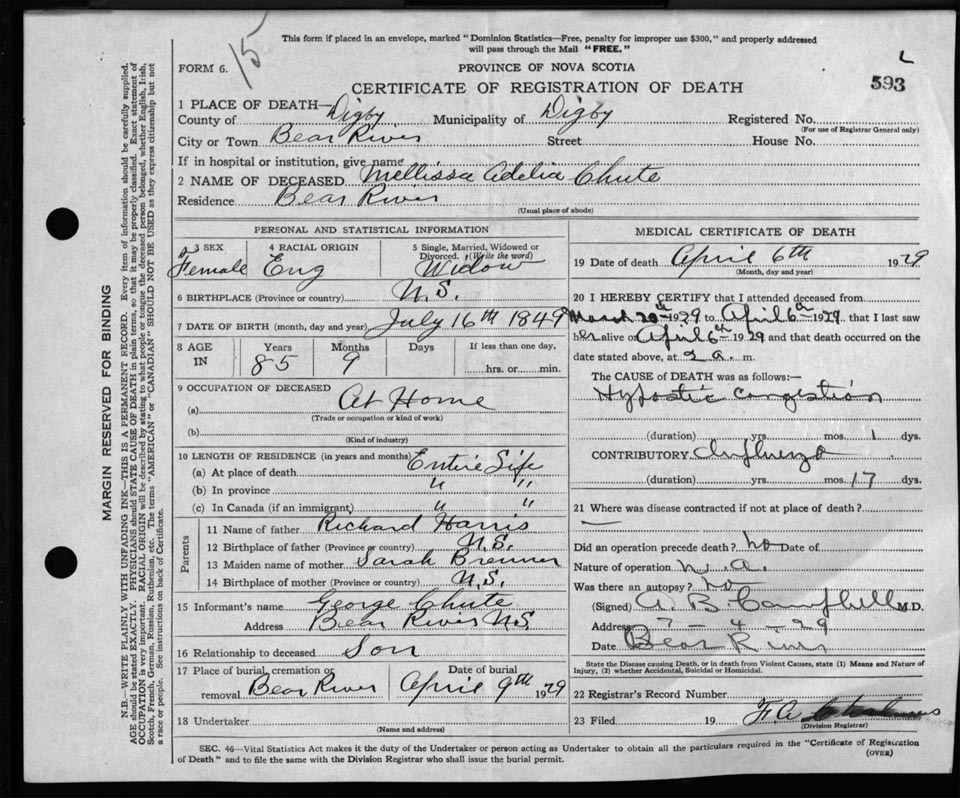 15
This form if placed in an envelope, marked "Dominion Statistics—Free, penalty for improper use $300," and properly addressed
will pass through the Mail "FREE."
L
FORM 6.
PROVINCE OF NOVA SCOTIA
593
CERTIFICATE OF REGISTRATION OF DEATH
1 PLACE OF DEATH—
County of Digby Municipality of Digby Registered No.
(For use of Registrar General only)
City or Town Bear River Street House No.
If in hospital or institution, give name
2 NAME OF DECEASED Mellissa Adelia Chute
Residence Bear River
(Usual place of abode)
PERSONAL AND STATISTICAL INFORMATION
3 SEX 4 RACIAL ORIGIN 5 Single, Married, Widowed or Divorced. (Write the word)
Female Eng Widow
6 BIRTHPLACE (Province or country) N.S.
7 DATE OF BIRTH (month, day and year) July 16th 1849
8 AGE IN Years Months Days If less than one day,
85 9 hrs. or min.
9 OCCUPATION OF DECEASED
(a) At Home
(Trade or occupation or kind of work)
(b)
(Kind of industry)
10 LENGTH OF RESIDENCE (in years and months)
(a) At place of death Entire Life
(b) In province " "
(c) In Canada (if an immigrant) " "
Parents
11 Name of father Richard Harris
12 Birthplace of father (Province or country) N.S.
13 Maiden name of mother Sarah
14 Birthplace of mother (Province or country) N.S.
15 Informant's name George Chute
Address Bear River N.S.
16 Relationship to deceased Son
17 Place of burial, cremation or removal Bear River Date of burial April 9th 1929
18 Undertaker
(Name and address)
MEDICAL CERTIFICATE OF DEATH
19 Date of death April 6th 1929
(Month, day and year)
20 I HEREBY CERTIFY that I attended deceased from
March 20th 1929 to April 6th 1929 that I last saw
her alive on April 6th 1929 and that death occurred on the
date stated above, at 2 a. m.
The CAUSE of DEATH was as follows:—
Hypostatic congestion
(duration) yrs. mos. 1 dys.
CONTRIBUTORY Influenza
(duration) yrs. mos. 17 dys.
21 Where was disease contracted if not at place of death?
—
Did an operation precede death? no Date of
Nature of operation n.a.
Was there an autopsy? no
(Signed) A. B. Campbell M.D.
Address 7-4-29
Date Bear River
State the Disease causing Death, or in death from Violent Causes, state (1) Means and Nature of
Injury, (2) whether Accidental, Suicidal or Homicidal.
22 Registrar's Record Number
23 Filed 19 F. A.
(Division Registrar)
SEC. 46—Vital Statistics Act makes it the duty of the Undertaker or person acting as Undertaker to obtain all the particulars required in the "Certificate of Registration
of Death" and to file the same with the Division Registrar who shall issue the burial permit.
(OVER)
MARGIN RESERVED FOR BINDING
N.B.—WRITE PLAINLY WITH UNFADING INK—THIS IS A PERMANENT RECORD. Every item of information should be carefully supplied.
AGE should be stated EXACTLY. PHYSICIANS should STATE CAUSE OF DEATH in plain terms, so that it may be properly classified. Exact statement of
OCCUPATION is very important. RACIAL ORIGIN will be described by stating to what people or tongue the deceased person belonged, whether English, Irish,
Scotch, French, German, Russian, Ruthenian, etc. The terms "AMERICAN" or "CANADIAN" SHOULD NOT BE USED as they express citizenship but not
a race or people. See instructions on back of Certificate.